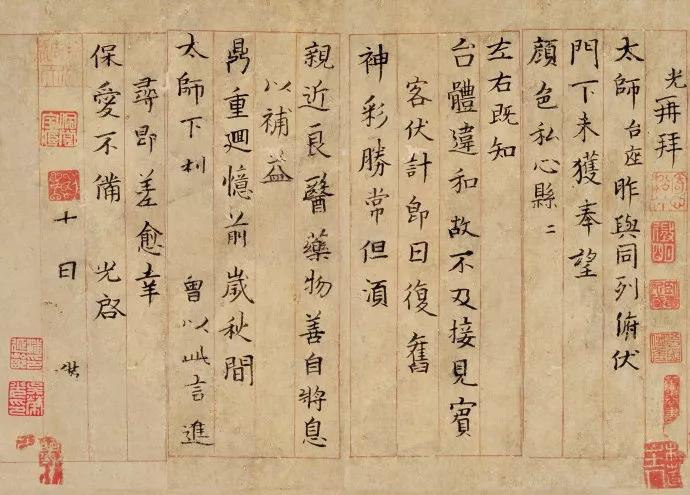 光再拜
太師台座昨與同列俯伏
門下未獲奉望
顏色私心縣〻
左右既知
台體違和故不及接見賓
客伏計即日復舊
神彩勝常但湏
親近良醫藥物善自將息
以補益
鼎重迴憶前歲秋間
太師下利曾以此言進
尋即差愈幸
保愛不備光啓
十日